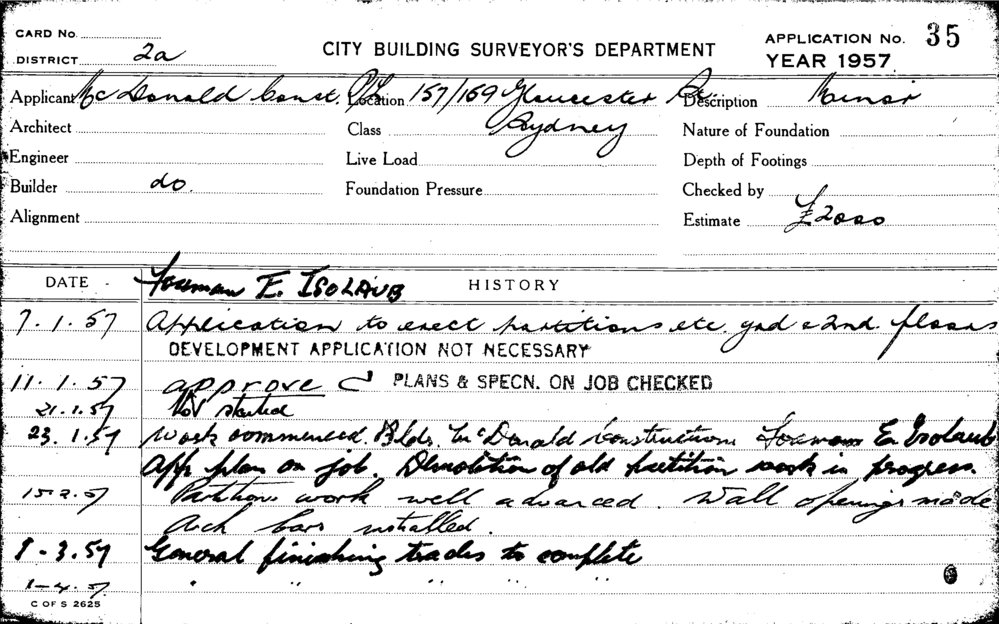 CARD No.
DISTRICT 2a
CITY BUILDING SURVEYOR'S DEPARTMENT
APPLICATION No. 35
YEAR 1957
Applicant McDonald Const. P/L Location 157/169 Gloucester St. Description Minor
Architect Class Sydney Nature of Foundation
Engineer Live Load Depth of Footings
Builder do. Foundation Pressure Checked by
Alignment Estimate £2000
DATE Foreman E. ISOLAUB HISTORY
7.1.57 Application to erect partitions etc. grd & 2nd. floors
DEVELOPMENT APPLICATION NOT NECESSARY
11.1.57 approve PLANS & SPECN. ON JOB CHECKED
21.1.57 Not started
23.1.57 Work commenced. Bldr. McDonald Constructions Foreman E. Isolaub
App plan on job. Demolition of old partition work in progress.
15.2.57 Partition work well advanced. Wall openings made
Arch bars installed.
1-3.57 General finishing trades to complete
1-4.57 " " "
C OF S 2625